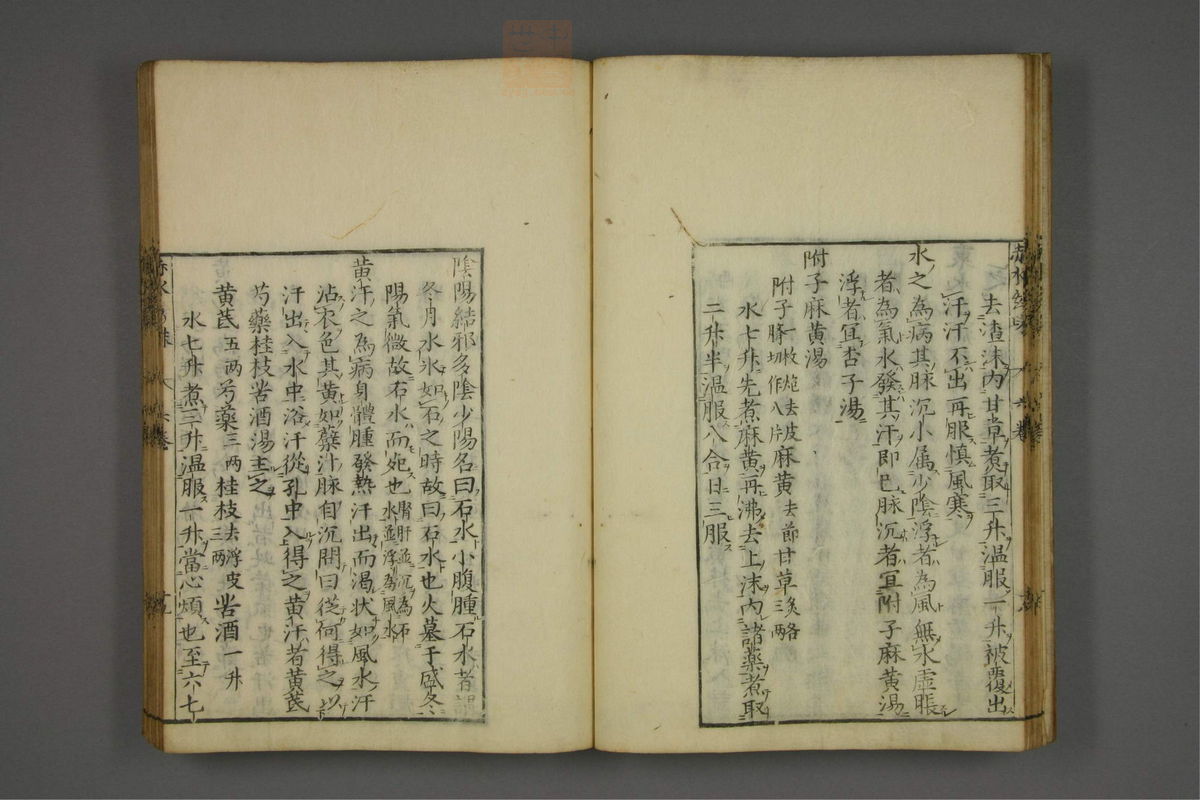 去渣沫內甘草煮取三升温服一升被覆出
汗汗不出再服慎風寒
水之為病其脉沉小属少陰浮者為風無水虚脹
者為氣水發其汗即已脉沉者冝附子麻黄湯
浮者冝杏子湯
附子麻黄湯
附子一枚炮去皮臍切作八片麻黄去節甘草炙各三两
水七升先煮麻黄再沸去上沫內諸藥煮取
二升半温服八合日三服
陰陽結邪多陰少陽名曰石水小腹腫石水者謂
冬月水氷如石之時故曰石水也火墓于盛冬
陽氣微故石水而死也腎肝並沉為石水並浮為風水
黄汗之為病身體腫發熱汗出而渴状如風水汗
沾衣色其黄如蘗汁脉自沉問曰從何得之以
汗出入水中浴汗從孔中入得之黄汗者黄芪
芍藥桂枝苦酒湯主之
黄芪五两芍藥三两桂枝去浮皮三两苦酒一升
水七升煮三升温服一升當心煩也至六七